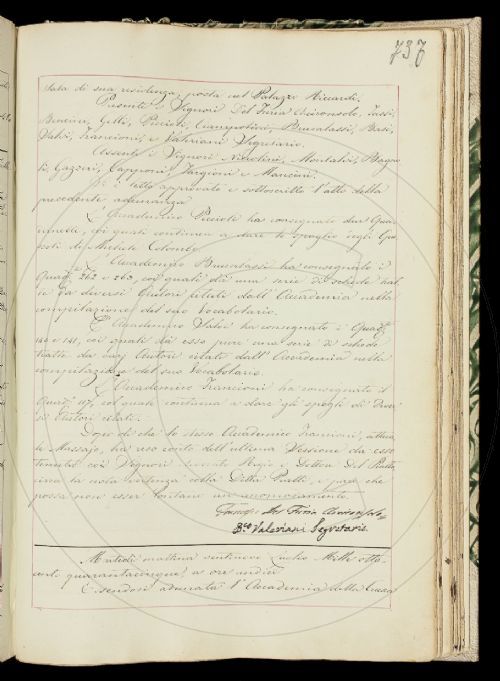 737
Sala di sua residenza posta nel Palazzo Riccardi.
Presenti i Signori Del Furia Arciconsolo, Tassi,
Bencini, Gelli, Piccioli, Ciampolini, Brucalassi, Basi,
Valeri, Francioni, e Valeriani Segretario.
Assenti i Signori Niccolini, Montalvi, Bagno
li, Gazzeri, Capponi, Targioni e Mancini.
Si è letto approvato e sottoscritto l'atto della
precedente adunanza
L'Accademico Piccioli ha consegnato due Qua
dernucci, coi quali continua a dare lo spoglio degli Opu
scoli di Michele Colombo
L'Accademico Brucalassi ha consegnato i
Quad. 262 e 263, coi quali dà una serie di schede trat
te da diversi Autori citati dall'Accademia nella
compilazione del suo Vocabolario.
L'Accademico Valeri ha consegnato i Quad.
140 e 141, coi quali dà esso pure una serie di schede
tratte da varj Autori citati dall'Accademia nella
compilazione del suo Vocabolario.
L'Accademico Francioni ha consegnato il
Quad. 117, col quale continua a dare gli spogli di Diver
si Autori citati.
Dopo di che lo stesso Accademico Francioni, attua
le Massajo, ha reso conto dell'ultima sessione da esso
tenuta coi Signori Avvocato Regio e Dottor Del Piatta
circa la nota vertenza colla Ditta Piatti, e pare che
possa non esser lontano uno
Francesco Del Furia Arciconsolo
B. Valeriani Segretario.
Martedì mattina ventinove Luglio Mille otto
cento quarantacinque a ore undici
Essendosi adunata l'Accademia della Crusca